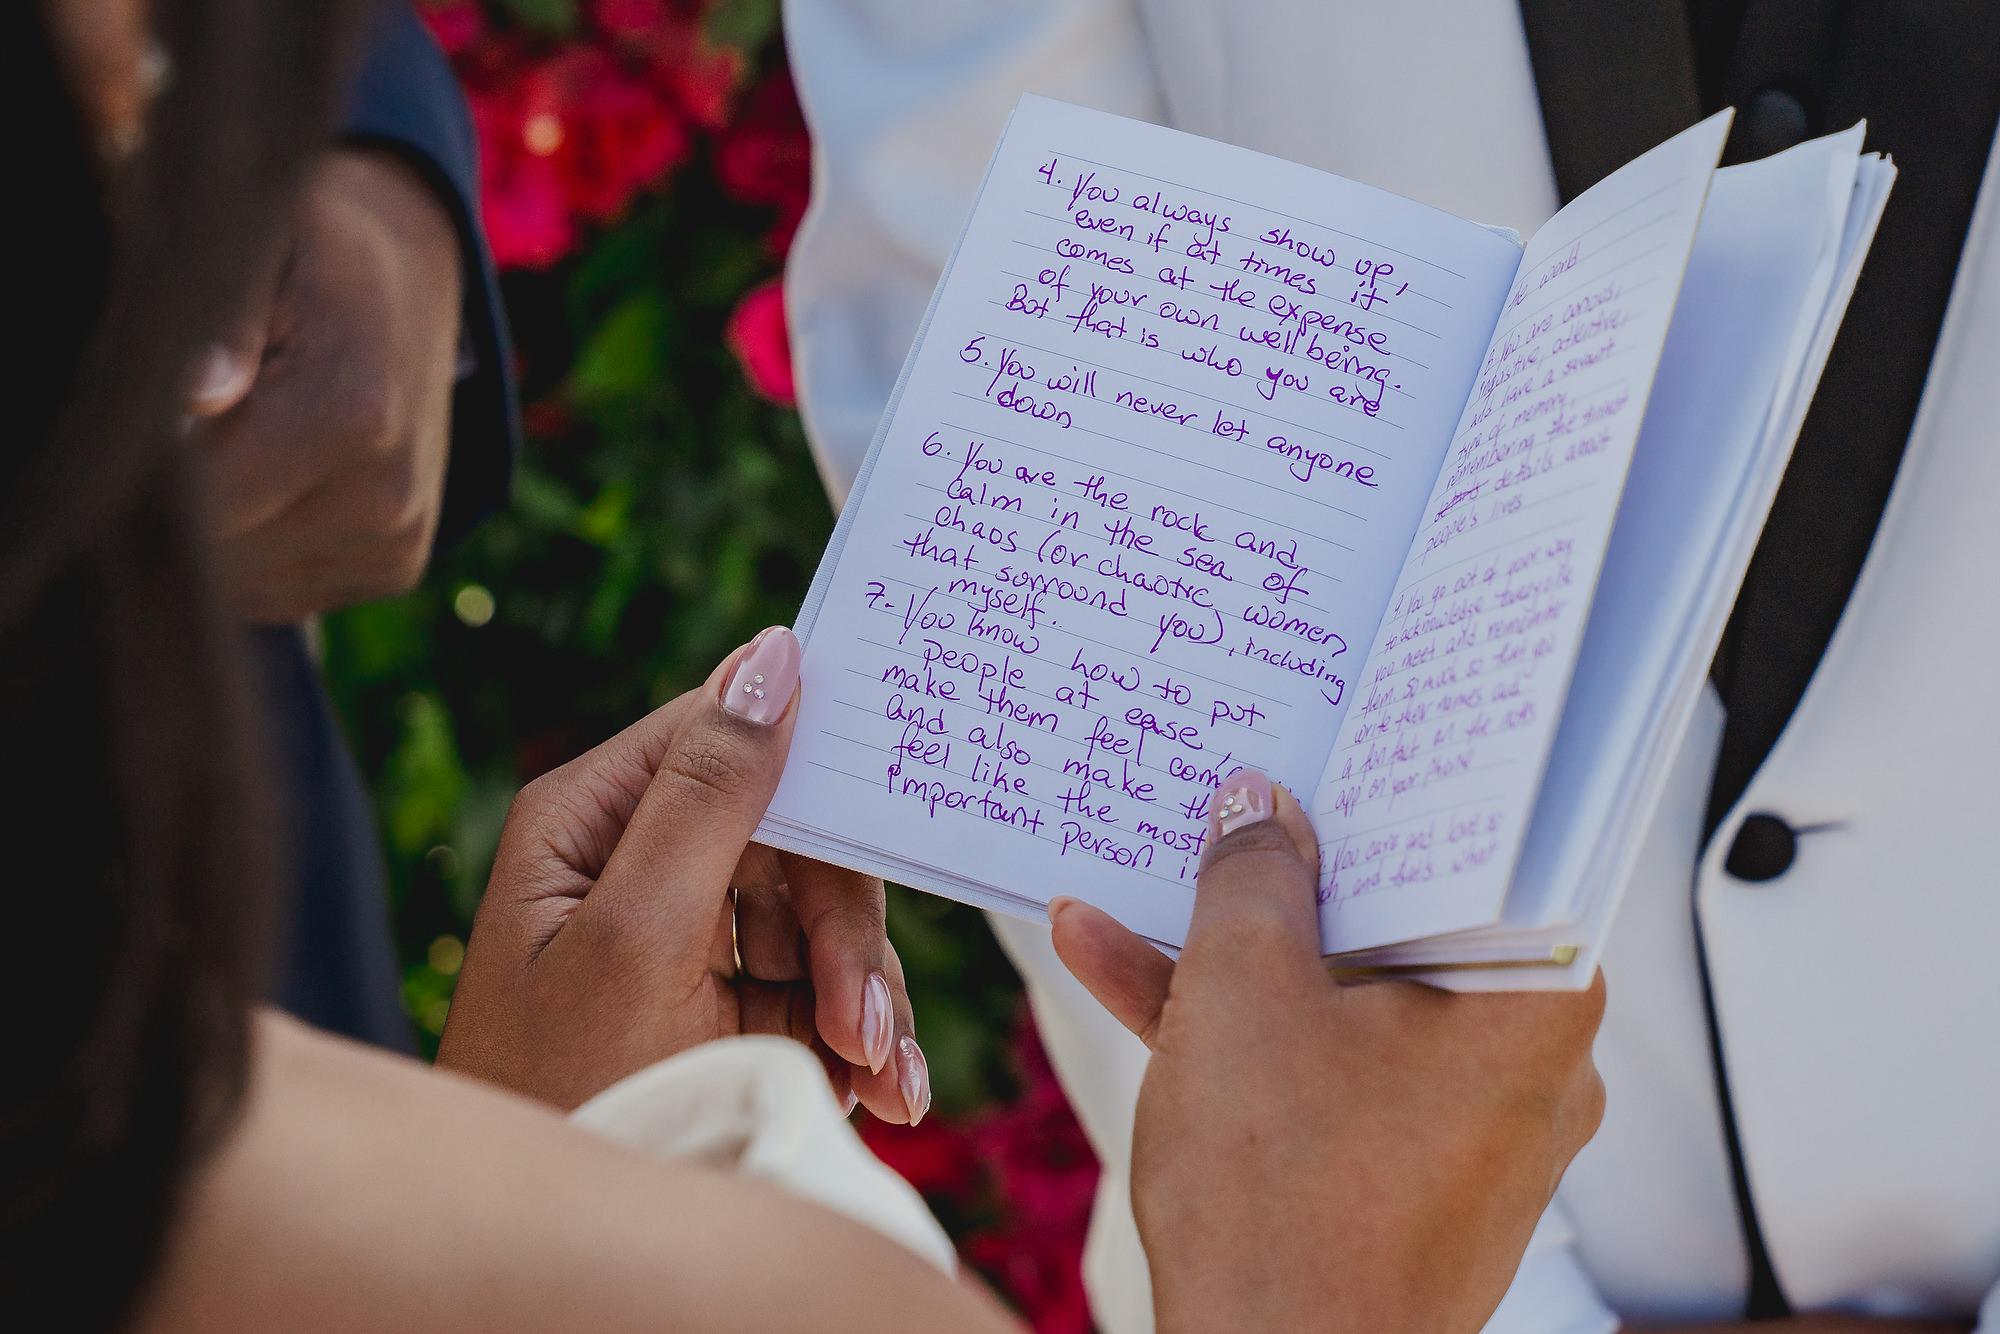 4. You always show up,
even if at times it
comes at the expense
of your own well being.
But that is who you are
5. You will never let anyone
down
6. You are the rock and
calm in the sea of
chaos (or chaotic women
that surround you), including
myself.
7. You know how to put
people at ease,
make them feel
and also make
feel like the most
important person
the world
8. You are curious,
inquisitive, attentive,
and have a savant
type of memory,
remembering the tiniest
details about
people's lives
9. You go out of your way
to acknowledge everyone
you meet and remember
them so much so that you
write their names and
a fun fact on the notes
app on your phone
You care and love so
and that's what